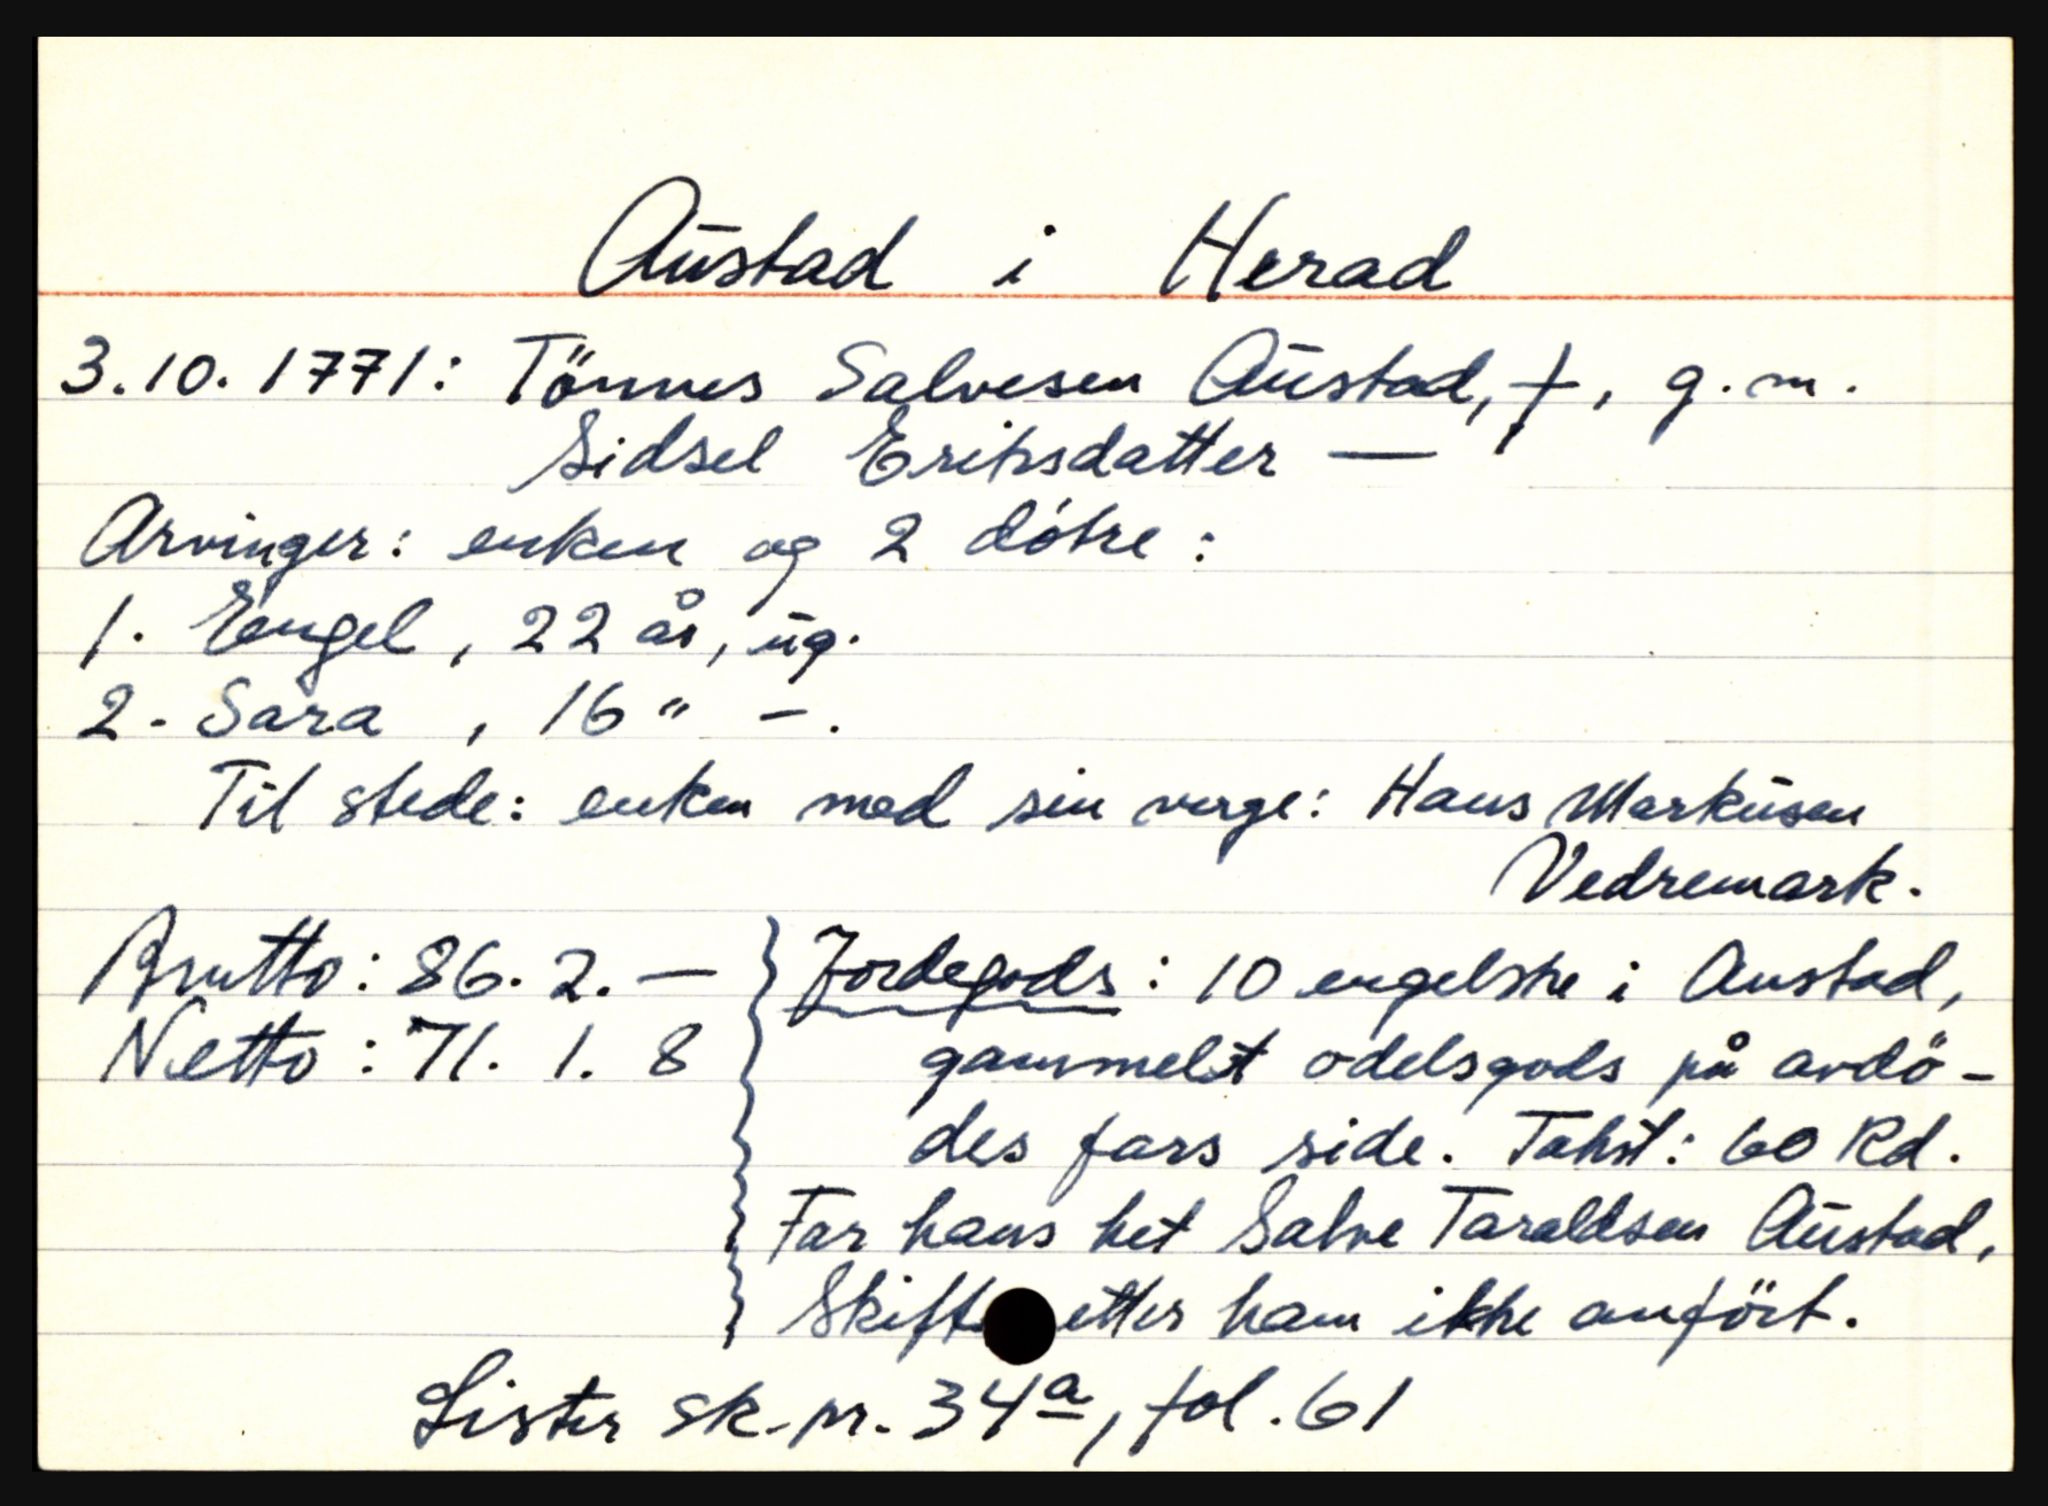 Austad i Herad
3.10.1771: Tönnes Salvesen Austad, †, g.m.
Sidsel Eriksdatter —
Arvinger: enken og 2 dötre:
1. Engel, 22 år, ug.
2. Sara, 16 " –.
Til stede: enken med sin verge: Hans Markusen
Vedremark.
Brutto: 86. 2. —
Netto: 71. 1. 8
Jordegods: 10 engelske i Austad,
gammelt odelsgods på avdö-
des fars side. Takst: 60 Rd.
Far hans het Salve Taraldsen Austad,
Skifte etter ham ikke anfört.
Lister sk.pr. 34a, fol. 61